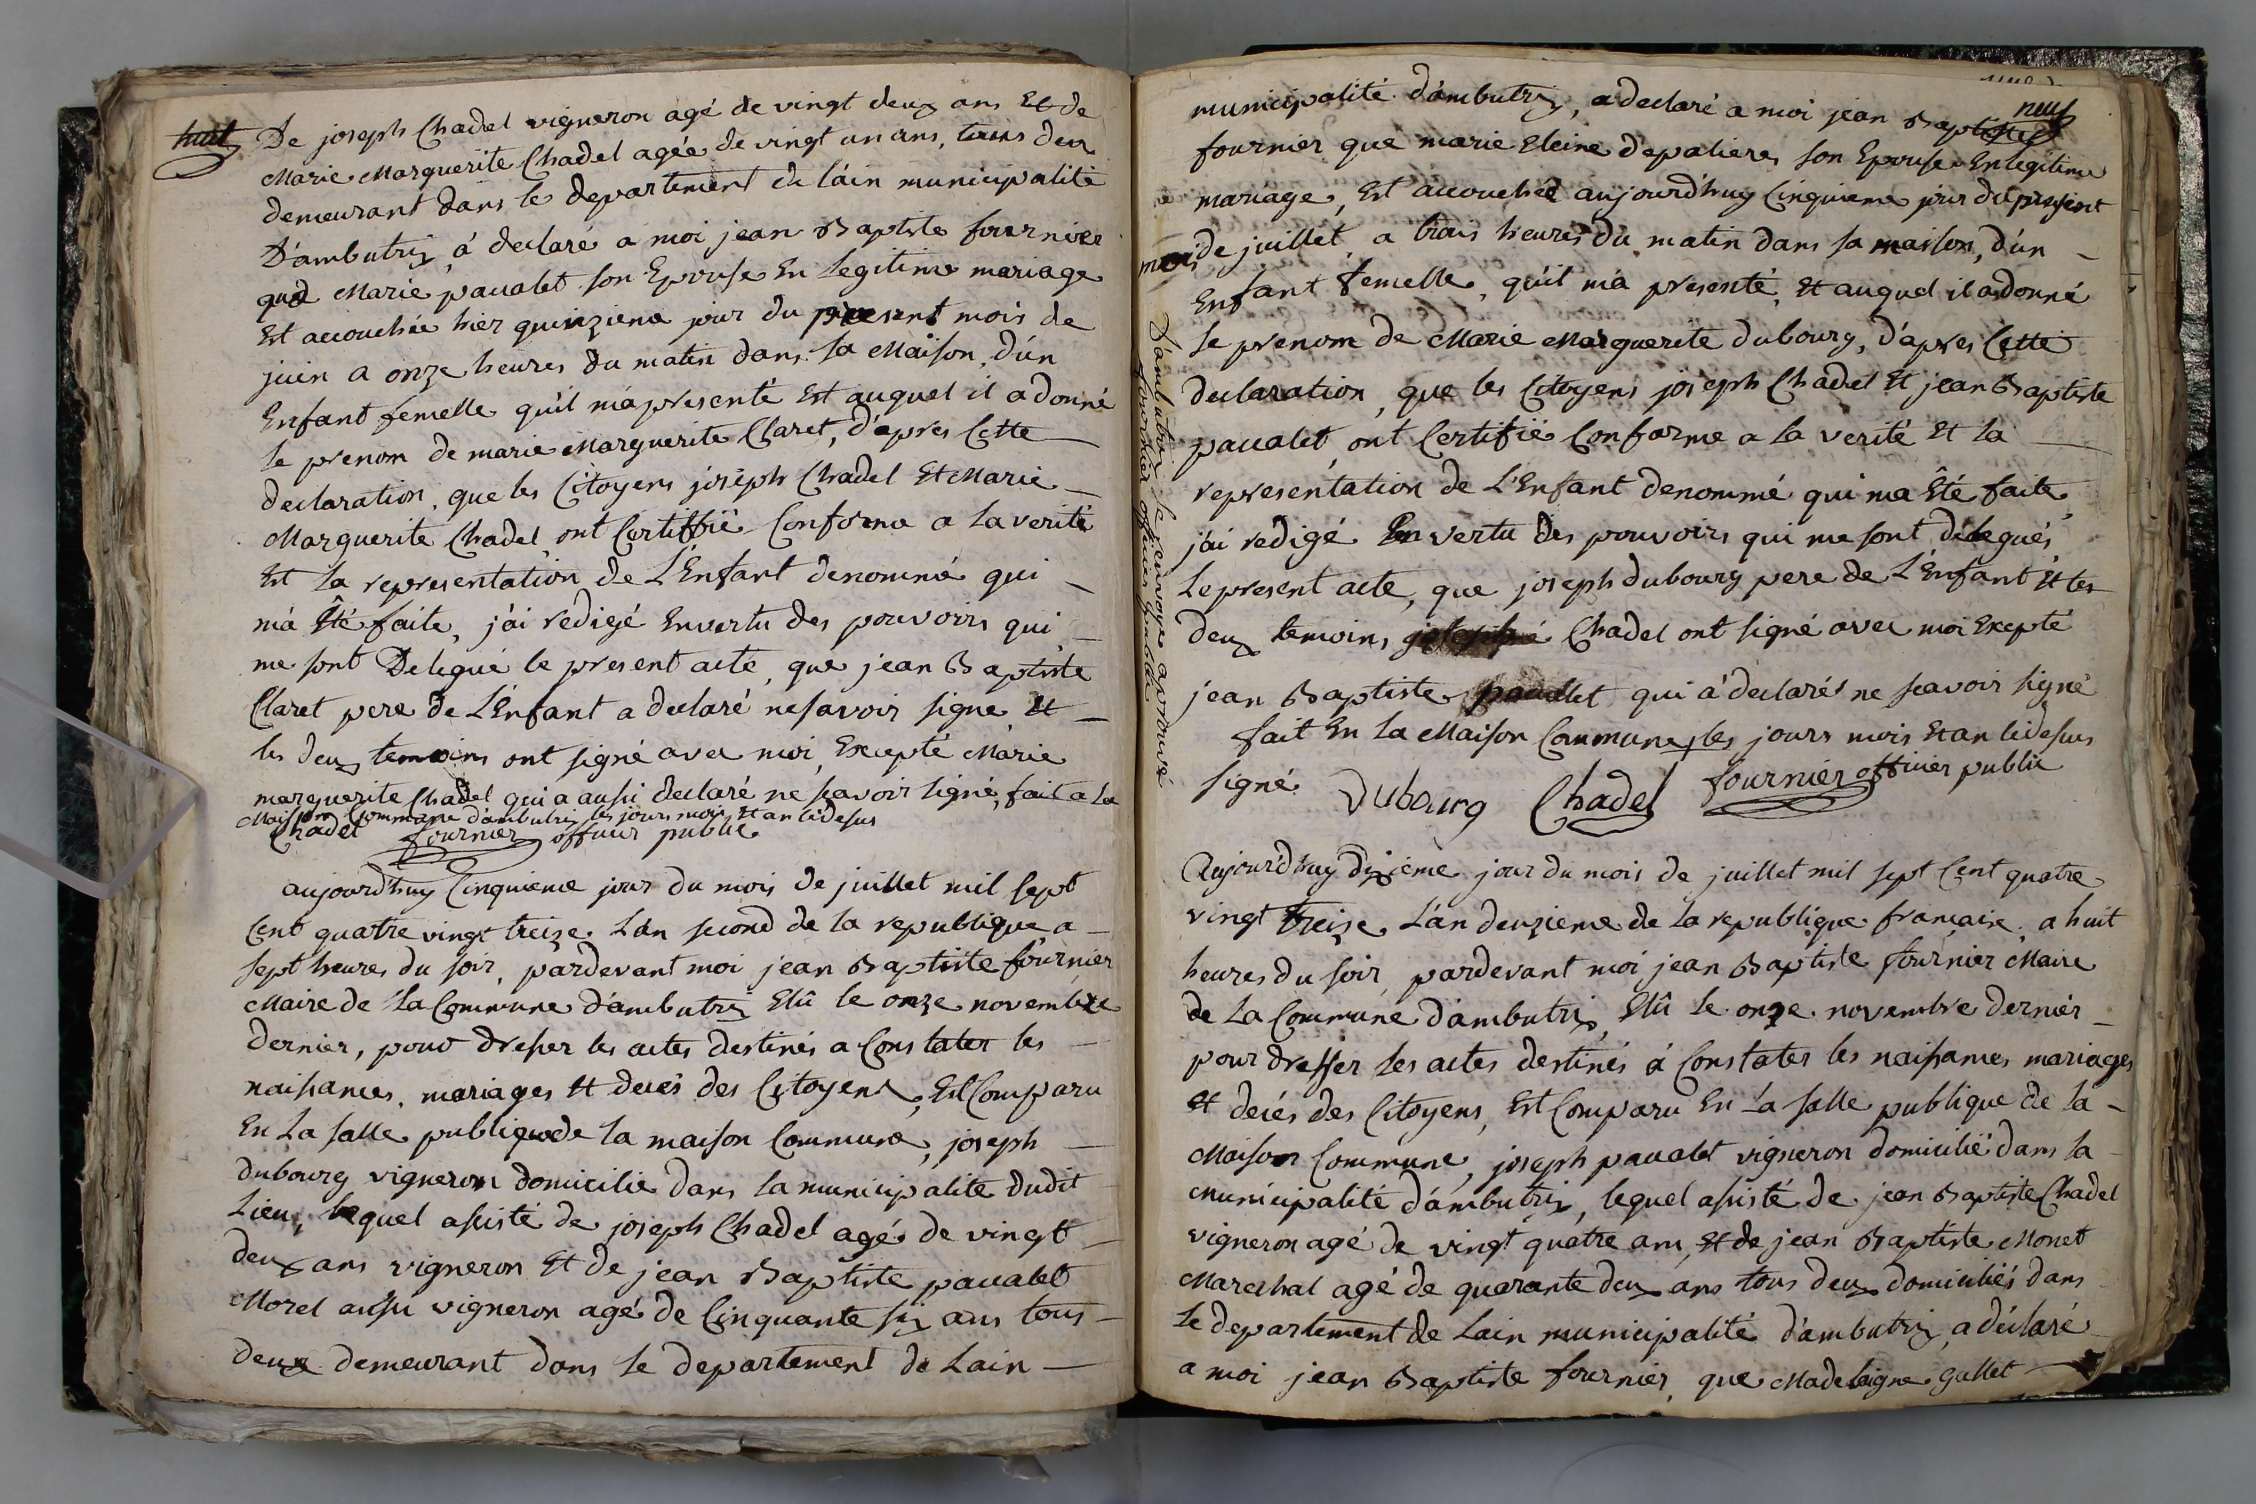 huit
De joseph Chadel vigneron agé de vingt deux ans Et de
Marie Marguerite Chadel agée de vingt un ans, tous deux
demeurant dans le departement de l'ain municipalité
D'ambutrix, á declaré a moi jean Baptiste fournier
que Marie pavalet son Epouse En Legitime mariage
Est accouchée hier quinzieme jour du present mois de
juin a onze heures du matin dans sa Maison, d'un
Enfant femelle qu'il m'a presenté Est auquel il a donné
le prenom de marie Marguerite Claret, d'apres Cette
declaration, que les Citoyens joseph Chadel Et Marie
Marguerite Chadel ont Certiffié Conforme a la verité
Est la representation de L'Enfant denommé qui
m'á Eté faite, j'ai redigé En vertu des pouvoirs qui
me sont Delegué le present acte, que jean Baptiste
Claret pere de L'Enfant a declaré ne savoir signé Et
les deux temoins ont signé avec moi, Excepté Marie
marguerite Chadel qui a aussi declaré ne scavoir signé, fait a la
Maison Commune d'ambutrix les jours mois Et an cidesus
Chadel fournier officier public
aujourd'huy Cinquieme jour du mois de juillet mil sept
Cent quatre vingt treize L'an second de la republique a
sept heures du soir, pardevant moi jean Baptiste fournier
Maire de La Commune d'ambutrix Elû le onze novembre
dernier, pour dresser les actes destinés a Constater les
naissances, mariages Et decés des Citoyens, Est Comparu
En La salle publique de la maison Commune, joseph
dubourg vigneron domicilié dans la municipalité dudit
Lieu, lequel assisté de joseph Chadel agé de vingt
deux ans vigneron Et de jean Baptiste pavalet
Morel aussi vigneron agé de Cinquante six ans tous
deux demeurant dans le departement de Lain
neuf
municipalité d'ambutrix, a declaré a moi jean Baptiste
fournier que marie Eleine depalieres son Epouse En legitime
mariage, Est accouchée aujourd'huy Cinquieme jour du present
mois de juillet, a trois heures du matin dans sa maison, d'un
Enfant femelle, qu'il m'a presenté, Et auquel il a donné
le prenom de Marie Marguerite dubourg, d'apres Cette
declaration, que les Citoyens joseph Chadel Et jean Baptiste
pavalet, ont Certifié Conforme a la verité Et la
representation de L'Enfant denommé qui m'a Eté faite,
j'ai redigé En vertu des pouvoirs qui me sont délegués
Le present acte, que joseph dubourg pere de L'Enfant Et les
deux temoins, Chadel ont signé avec moi Excepté
jean Baptiste pavallet qui á declaré ne scavoir signé
fait En La Maison Commune, les jours mois Et an cidesus
signé. Dubourg Chadel fournier officier public
D'ambutrix le renvoye aprouvé
fournier officier public
Aujourd'huy dixieme jour du mois de juillet mil sept Cent quatre
vingt Treize L'an deuzieme de la republique française, a huit
heures du soir, pardevant moi jean Baptiste fournier Maire
de La Commune d'ambutrix, Elû le onze novembre dernier
pour dresser les actes destinés á Constater les naissances mariages
Et decés des Citoyens, Est Comparu En La salle publique de la
Maison Commune, joseph pavalet vigneron domicilié dans la
Municipalité d'ambutrix, lequel assisté de jean Baptiste Chadel
vigneron agé de vingt quatre ans, Et de jean Baptiste Monet
Marechal agé de quarante deux ans tous deux domiciliés dans
le departement de Lain municipalité d'ambutrix, a déclaré
a moi jean Baptiste fournier, que Madelaigne Gallet